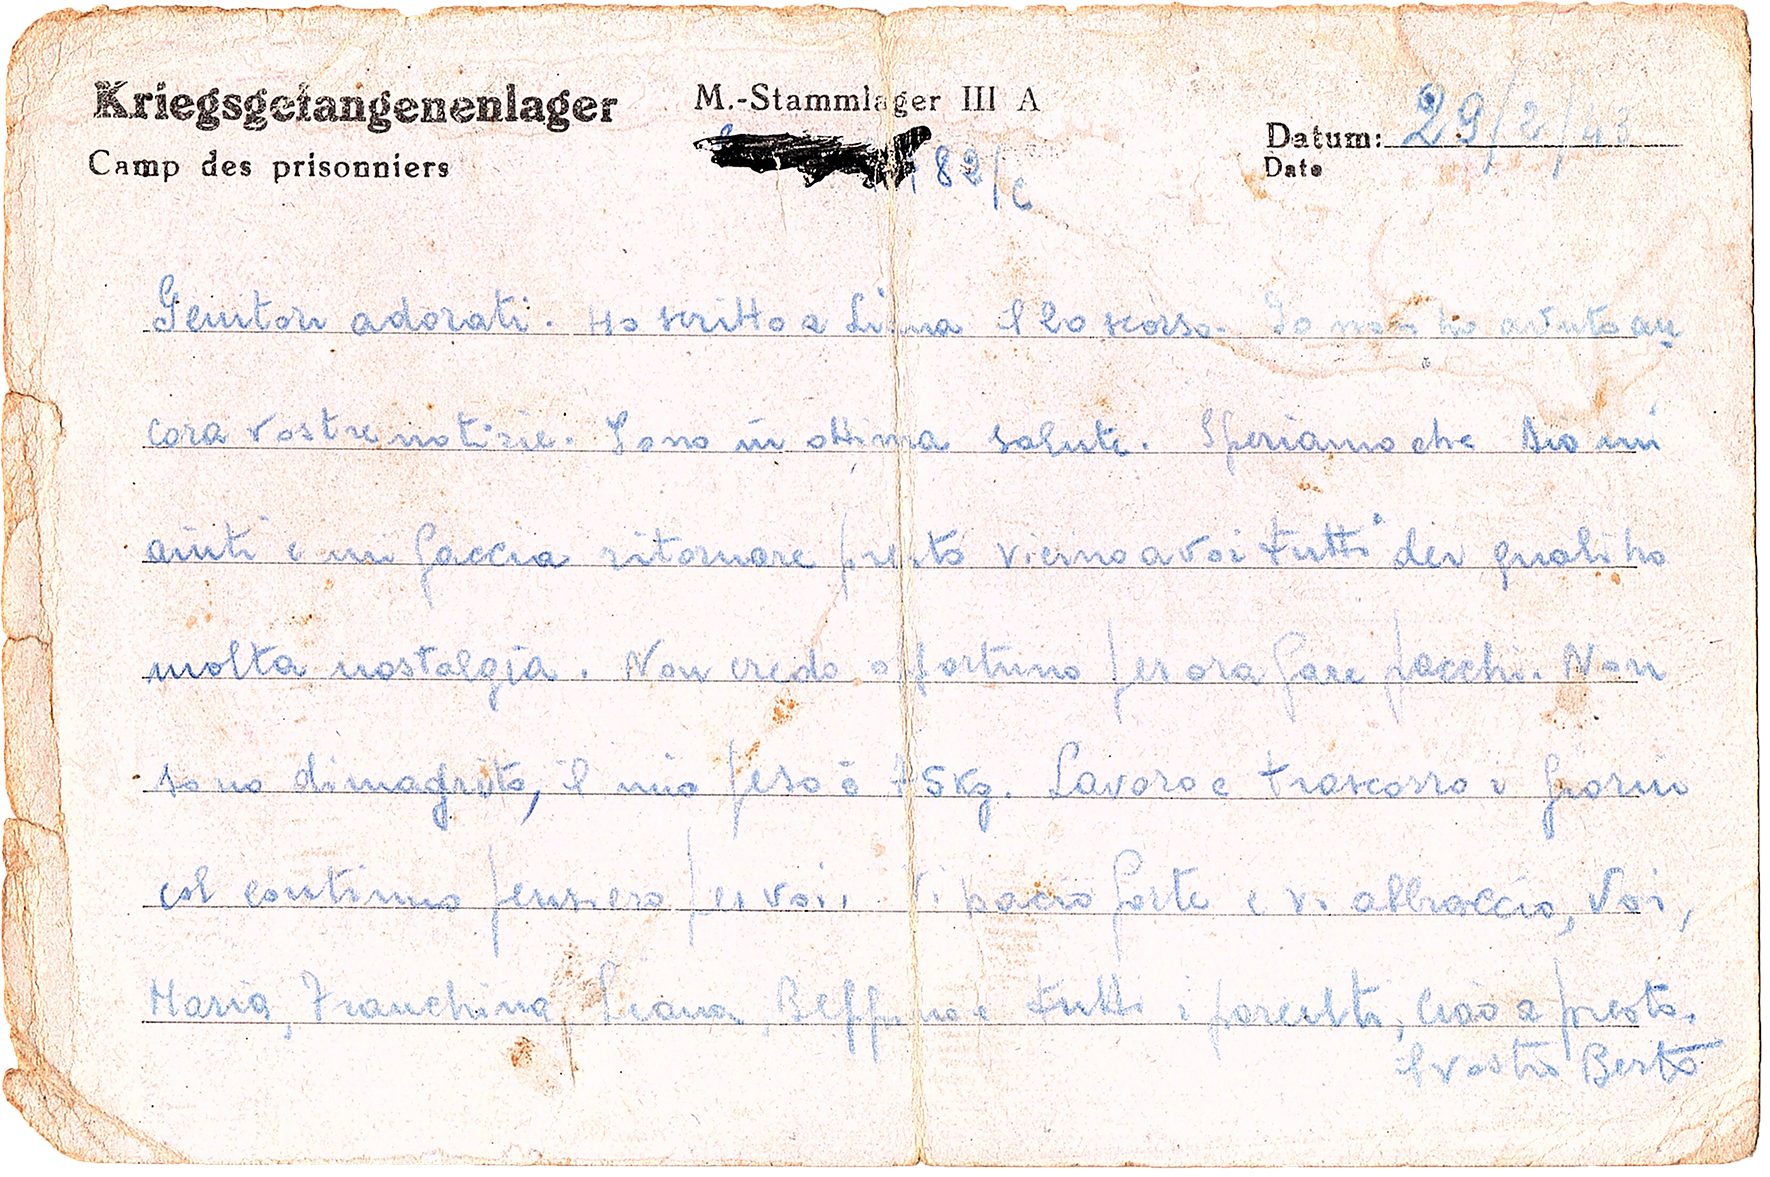 Kriegsgefangenenlager M.-Stammlager III A
Camp des prisonniers
182/c
Datum: 29/2/43
Date
Genitori adorati. Ho scritto a Liana il 20 scorso. Io non ho avuto an
cora vostre notizie. Sono in ottima salute. Speriamo che Dio mi
aiuti e mi faccia ritornare presto vicino a voi tutti dei quali ho
molta nostalgia. Non credo opportuno per ora fare pacchi. Non
sono dimagrito, il mio peso è 75 Kg. Lavoro e trascorro i giorni
col continuo pensiero per voi. Vi bacio forte e vi abbraccio, Voi,
Maria, Franchina, Liana, Beppino e tutti i parenti, Ciao a presto.
il vostro Berto